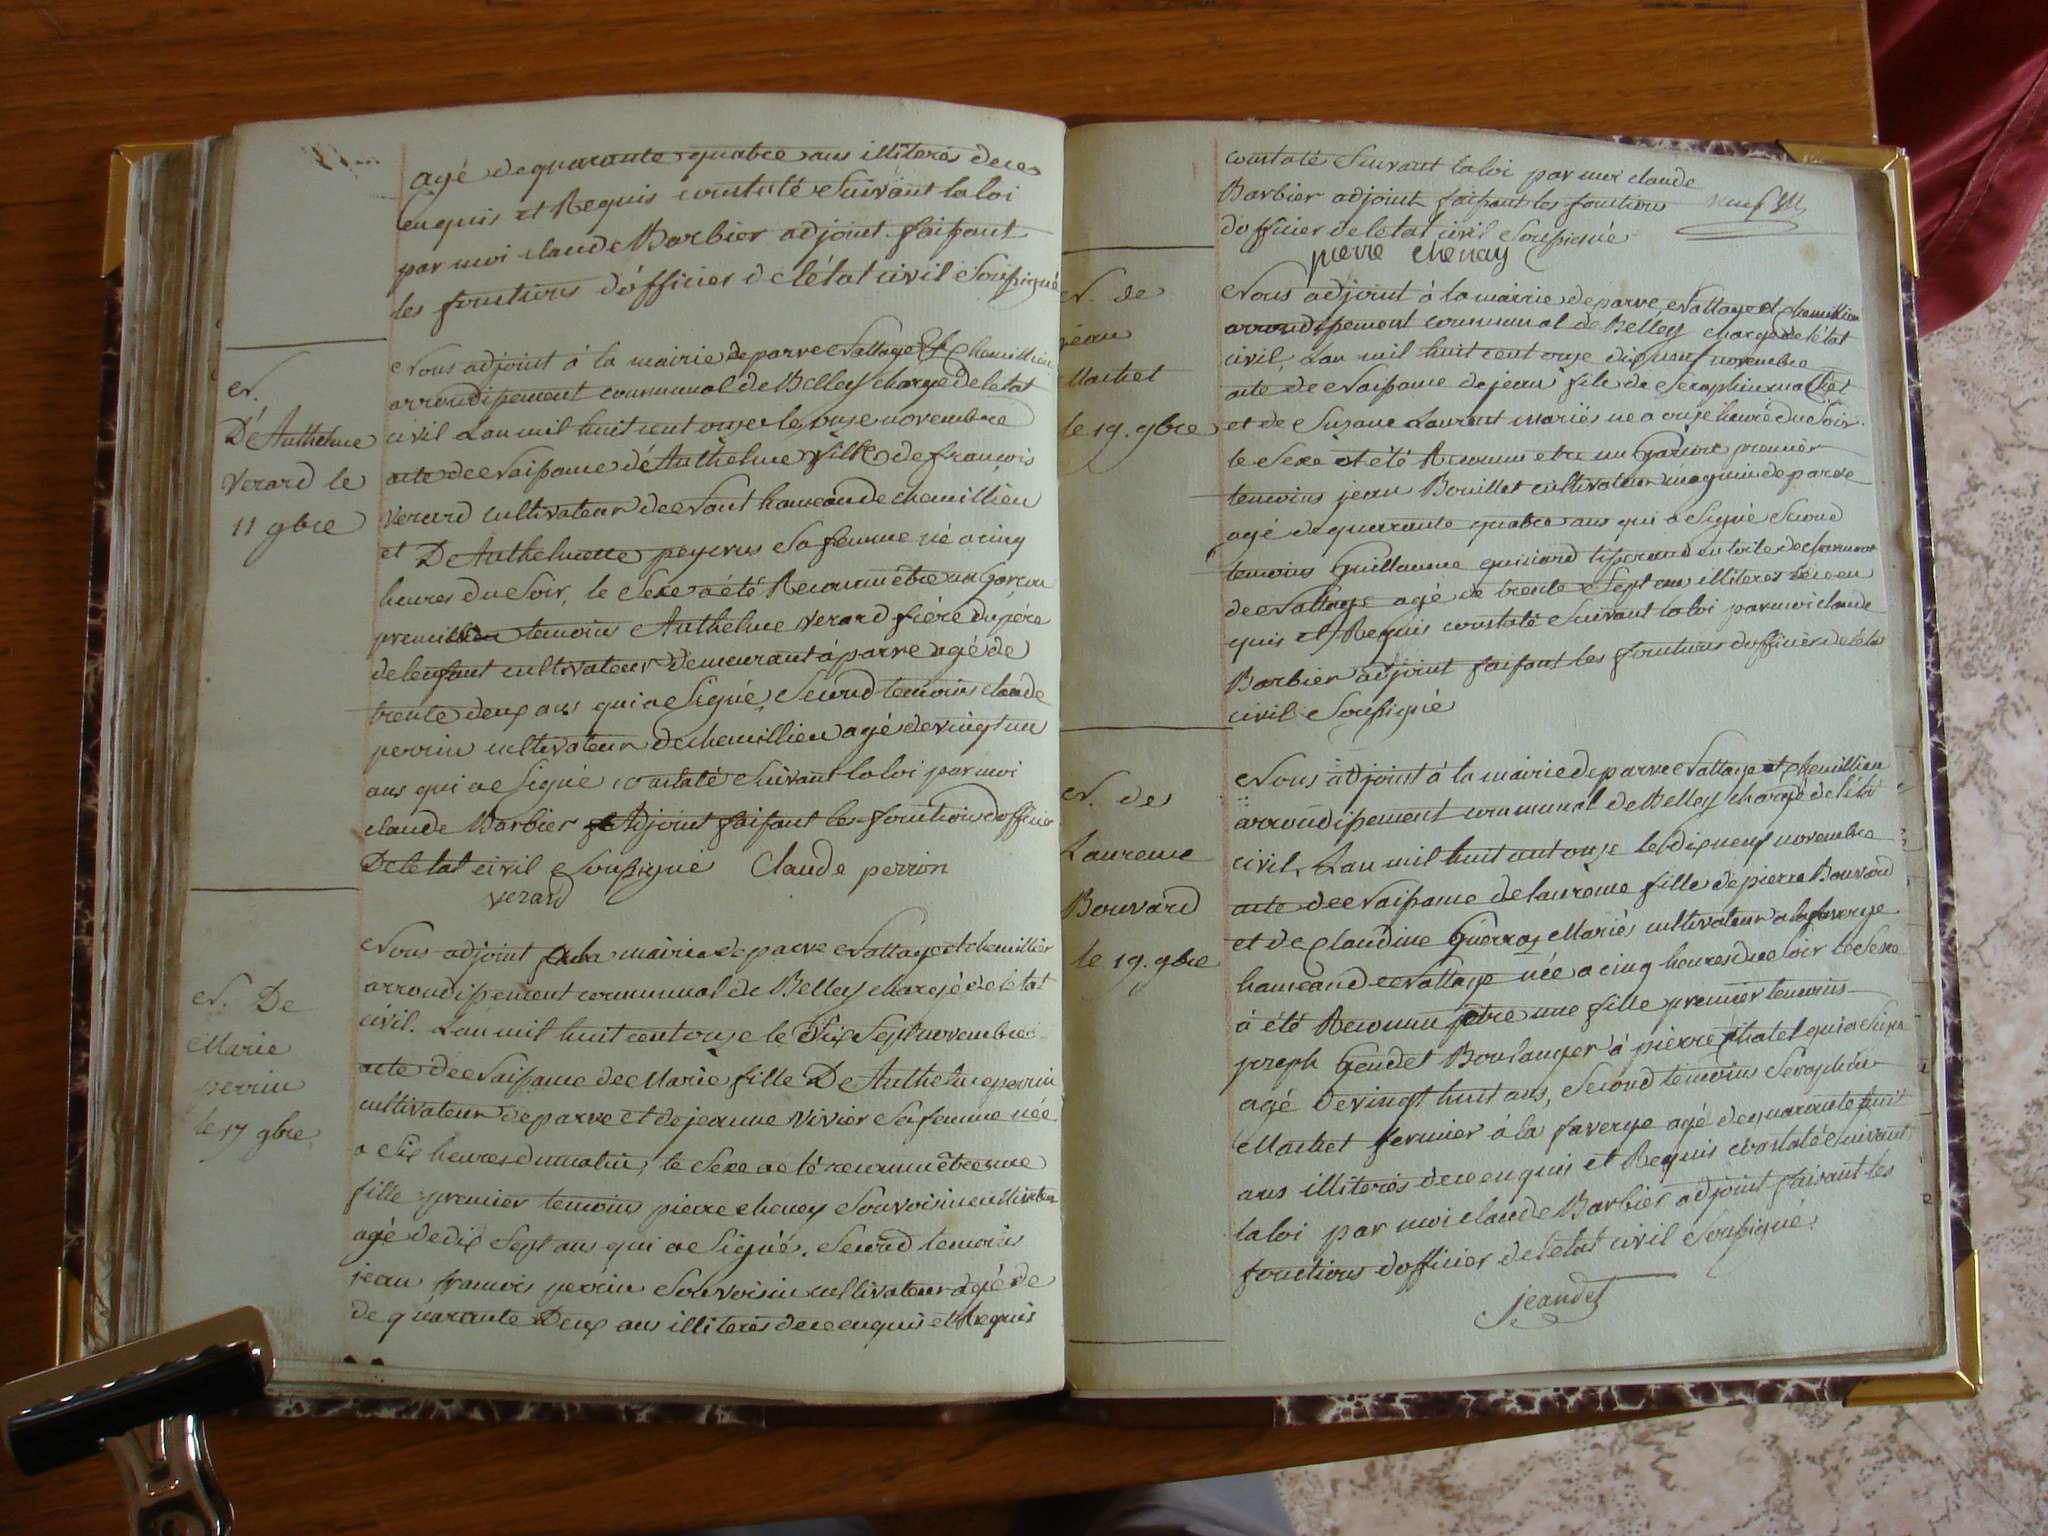 agé de quarante quatre ans illiterés de ce
enquis et Requis constaté Suivant la loi
par moi claude Barbier adjoint faisant
les fonctions d'officier de l'état civil Soussigné
N.
D'Anthelme
Verard le
11 gbre
Nous adjoint à la mairie de parve Nattage Et Chemillieu
arrondissement communal de Belley chargé de letat
civil Lan mil huit cent onze le onze novembre
acte de Naissance d'Anthelme fils de françois
Verard cultivateur de Nant hameau de chemillieu
et D'Anthelmette peycrus Sa femme né a cinq
heures du Soir, le Sexe a été Reconnu être un Garçon
premier temoins Anthelme Verard frère du père
de lenfant cultivateur demeurant à parve agé de
trente deux ans qui a Signé, Second temoins claude
perrin cultivateur de chemillieu agé de vingt un
ans qui a Signé constaté Suivant la loi par moi
claude Barbier Adjoint faisant les fonctions d'officier
De letat civil Soussigné Claude perrin
verard
N. De
Marie
perrin
le 17 gbre
Nous adjoint a la mairie de parve Nattage et chemillieu
arrondissement communal de Belley chargé de letat
civil. Lan mil huit cent onze le Dix Sept novembre
acte de Naissance de Marie fille D'Anthelme perrin
cultivateur de parve et de jeanne Vivier Sa femme née
a Six heures du matin, le Sexe a eté reconnu être une
fille premier temoins pierre cheney Son voisin cultivateur
agé de dix Sept ans qui a Signé. Second temoins
jean francois perrin Son voisin cultivateur agé de
de quarante Deux ans illiterés de ce enquis et Requis
constaté Suivant la loi par moi claude
Barbier adjoint faisant les fonctions
d'officier de letat civil Soussigné
pierre chenay
N. de
jean
Machet
le 19. gbre
Nous adjoint à la mairie de parve, Nattage et chemillieu
arrondissement communal de Belley chargé de létat
civil, Lan mil huit cent onze dix neuf novembre
acte de Naissance de jean fils de Seraphin machet
et de Suzane Laurent mariés né a onze heure du Soir.
le Sexe et été Reconnu etre un Garçon premier
temoins jean Bouillet cultivateur de parve
agé de quarante quatre ans qui a Signé Second
temoins Guillaume tisserand en toile de
de Nattage agé de trente Sept ans illiteres de ce en
quis et Requis constaté Suivant la loi par moi claude
Barbier adjoint faisant les fonctions d'officier de létat
civil Soussigné
N. de
Laurence
Bouvard
le 19. gbre
Nous adjoint à la mairie de parve Nattage et chemillieu
arrondissement communal de Belley chargé de létat
civil, Lan mil huit cent onze le dix neuf novembre
acte de Naissance de laurence fille de pierre Bouvard
et de Claudine Guerraz Mariés cultivateur a la faverge
hameau de Nattage née a cinq heures du soir le Sexe
à été Reconnu etre une fille premier temoins
joseph Gendet Boulanger à pierre chatel qui a Signé
agé de vingt huit ans, Second temoins Seraphin
Machet fermier à la faverge agé de quarante huit
ans illiterés de ce enquis et Requis constaté Suivant
la loi par moi claude Barbier adjoint faisant les
fonctions d'officier de letat civil Soussigné.
jeandet